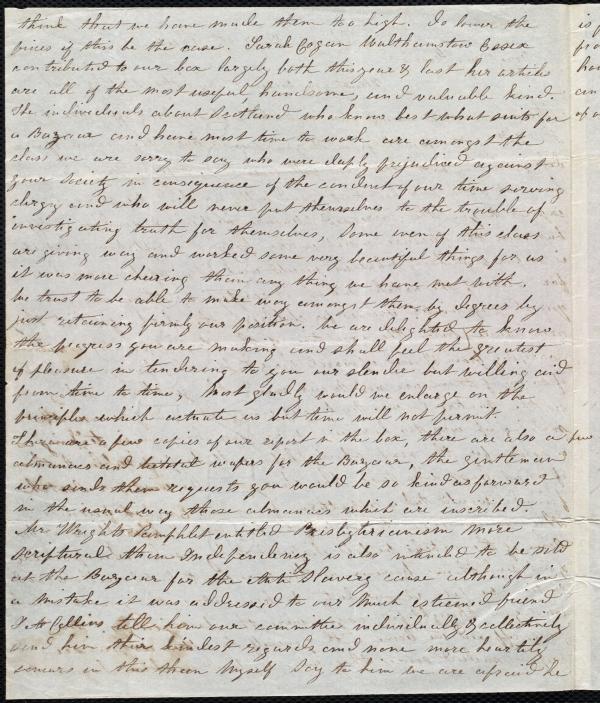 think that we have made them too high. Do lower the
prices if this be the case. Sarah Cogan Walthamstow Essex
contributed to our box largely both this year & last her articles
are all of the most useful, handsome, and valuable kind.
The individuals about Scotland who know best what suits for
a Bazaar and have most time to work are amongst the
class we are sorry to say who were deeply prejudiced against
your Society in consequence of the conduct of our time serving
clergy and who will never put themselves to the trouble of
investigating truth for themselves, Some even of this class
are giving way and worked some very beautiful things for us
it was more cheering than any thing we have met with.
We trust to be able to make way amongst them by degrees by
just retaining firmly our position. We are delighted to know
the progress you are making and shall feel the greatest
of pleasure in tendering to you our slender but willing aid
from time to time, Most gladly would we enlarge on the
principles which actuate us but time will not permit.
There are a few copies of our report in the box, there are also a few
almanacs and wafers for the Bazaar, the gentleman
who sends them requests you would be so kind as forward
in the usual way those almanacs which are inscribed.
Mr Wright's Pamphlet entitled Presbyterianism more
Scriptural than Independency is also intended to be sold
at the Bazaar for the Anti Slavery cause although in
a mistake it was addressed to our much esteemed friend
J. A Collins tell him our committee individually & collectively
send him their kindest regards and none more heartily
concurs in this than Myself Say to him we are afraid he
is